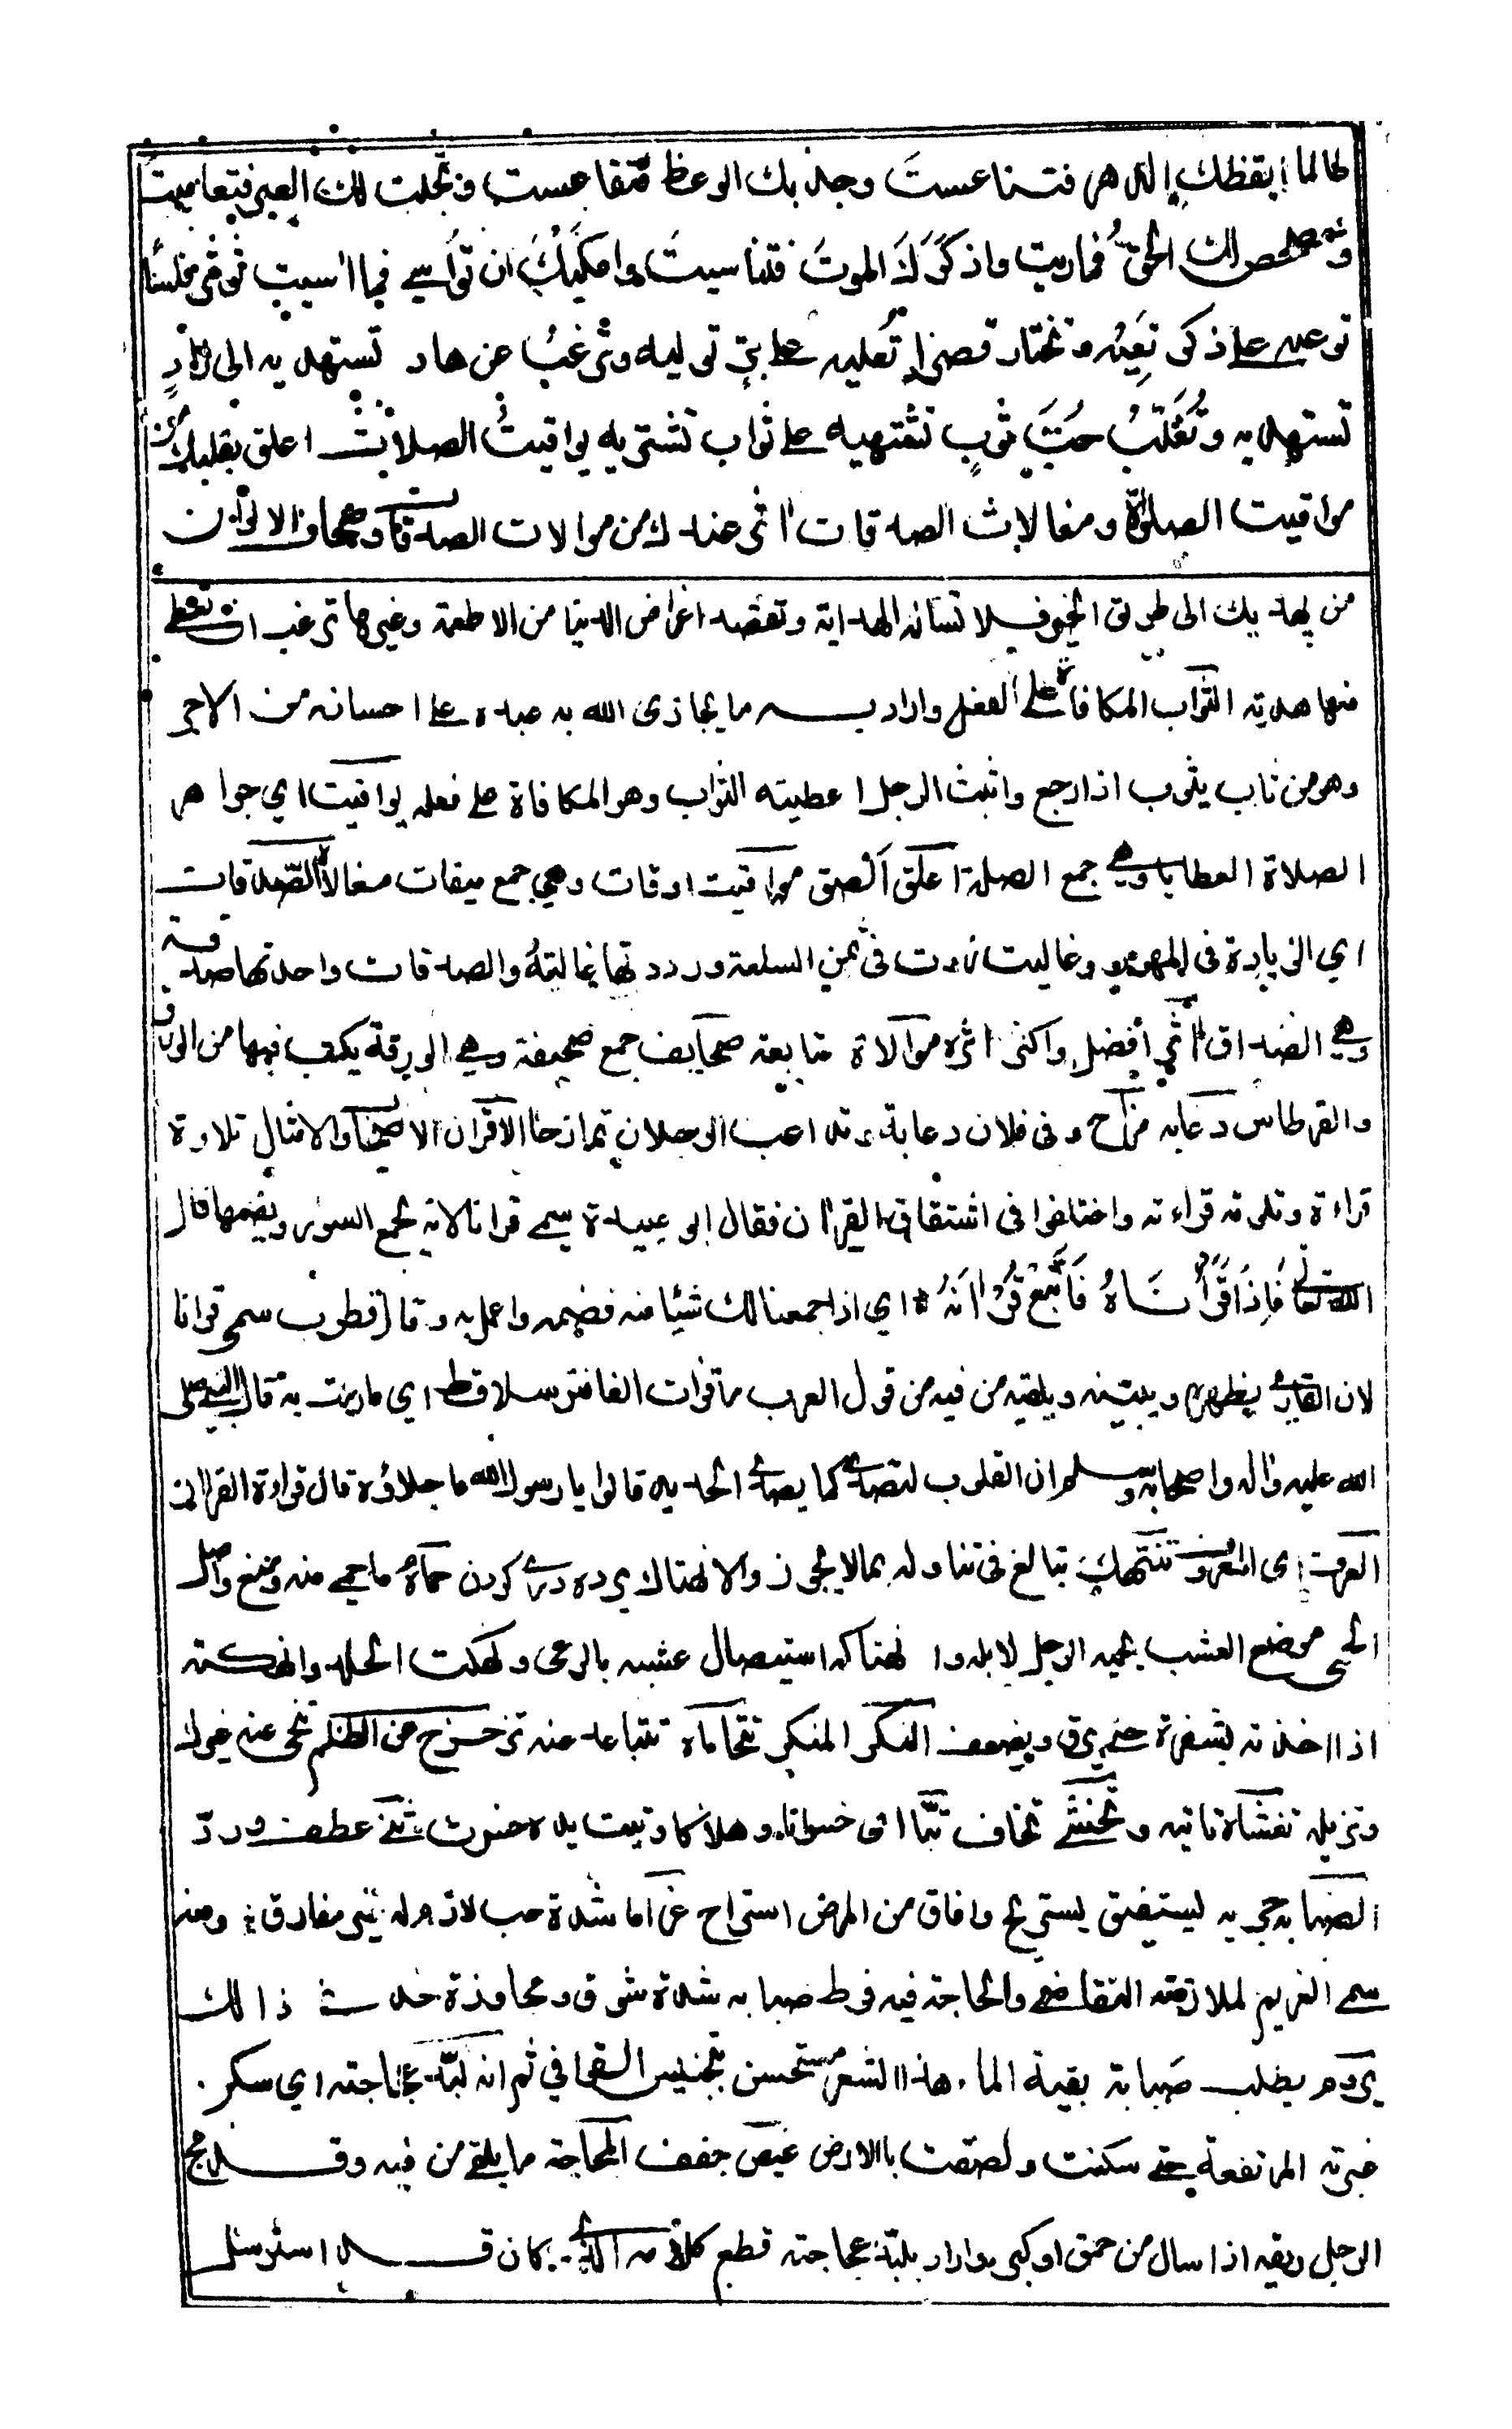 طالما أيقظك الدهر فتناعست وجذبك الوعظ فتقاعست وتجلت لك العبر فتعاميت
وحصحص لك الحق فماريت واذكرك الموت فتناسيت وامكنك ان تواسي فما اسيت توثر فلسا
توعيه على ذكر تعيه وتختار قصرا تعليه على بر توليه وترغب عن هاد تستهديه الى زاد
تستهديه وتغلب حب ثوب تشتهيه على ثواب تشتريه يواقيت الصلات اعلق بقلبك من
مواقيت الصلوة ومغالات الصدقات اثر عندك من موالات الصدقات وصحاف الالوان
من يهديك الى طريق الخير فلا تساله الهداية وتقصد اغراض الدنيا من الاطعمة وغيرها ترغب ان تعطى
منها هدية الثواب المكافاة على الفعل واراد به ما يجازى الله به عبده على احسانه من الاجر
وهو من ثاب يثوب اذا رجع واثبت الرجل اعطيته الثواب وهو المكافاة على فعله يواقيت اي جواهر
الصلاة العطايا وهي جمع الصلة اعلق الصق مواقيت اوقات وهي جمع ميقات مغالاة الصدقات
اي الزيادة في المهور وغاليت زدت في ثمن السلعة ورددتها غاليته والصدقات واحدتها صدقة
وهي الصداق اثر أفضل واكثر اثره موالاة متابعة صحايف جمع صحيفة وهي الورقة يكتب فيها من الورق
والقرطاس دعابه مزاح وفي فلان دعابة وتداعب الرجلان تمازحا الاقران الاصحاب والامثال تلاوة
قراءة وتلوته قراءته واختلفوا في اشتقاق القران فقال ابو عبيدة يسمى قرانا لانه يجمع السور ويضمها قال
الله تعالى فَإِذَا قَرَأْنَاهُ فَاتَّبِعْ قُرْآنَهُ اي اذا جمعنا لك شيئا منه فضمه واعمل به وقال قطرب سمى قرانا
لان القارئ يظهره ويبينه ويلقيه من فيه من قول العرب ما قرات الناقة سلا قط اي ما رمت به قال النبي صلى
الله عليه واله واصحابه وسلم ان القلوب لتصدى كما يصدى الحديد قالوا يا رسول الله ما جلاؤه قال قراءة القران
العرف اي المعروف تنتهك تبالغ في تناوله بما لا يجوز والانهتاك پرده دری کردن حماه ما حمى منه ومنع واصل
الحمى موضع العشب يحميه الرجل لابله وانهتاكه استيصال عشبه بالرعى ونهكت الحلد وانهكته
اذا اخذته بشفرة حتى يرق ويضعف النكر المنكر تتحاماه تتباعد عنه تزحزح عن الظلم تنحى عنه غيرك
وتزيله تغشاه تاتيه وتخشى تخاف تبا اى خسرانا وهلاكا وتبت يده خسرت ثنى عطف ورد
انصبابه جريه ليستفيق يستريح وافاق من المرض استراح غراما شدة حب لازم له غير مفارق ومنه
سمى الغريم لملازمته التقاضى والحاجة فيه فرط صبابه شدة شوق ومجاوزة حد ذالك
يروم يطلب صبابة بقية الماء هذا الشعر مستحسن بتجنيس القوافي ثم انه لبد عجاجته اي سكر
غبرته المرتفعة حتى سكنت ولصقت باالارض غيض جفف المجاجة ما يلقى من فيه وقد مج
الرجل ريقه اذا سال من حمق او كبر واراد بلبد عجاجته قطع كلامه الذي كان قد استرسل